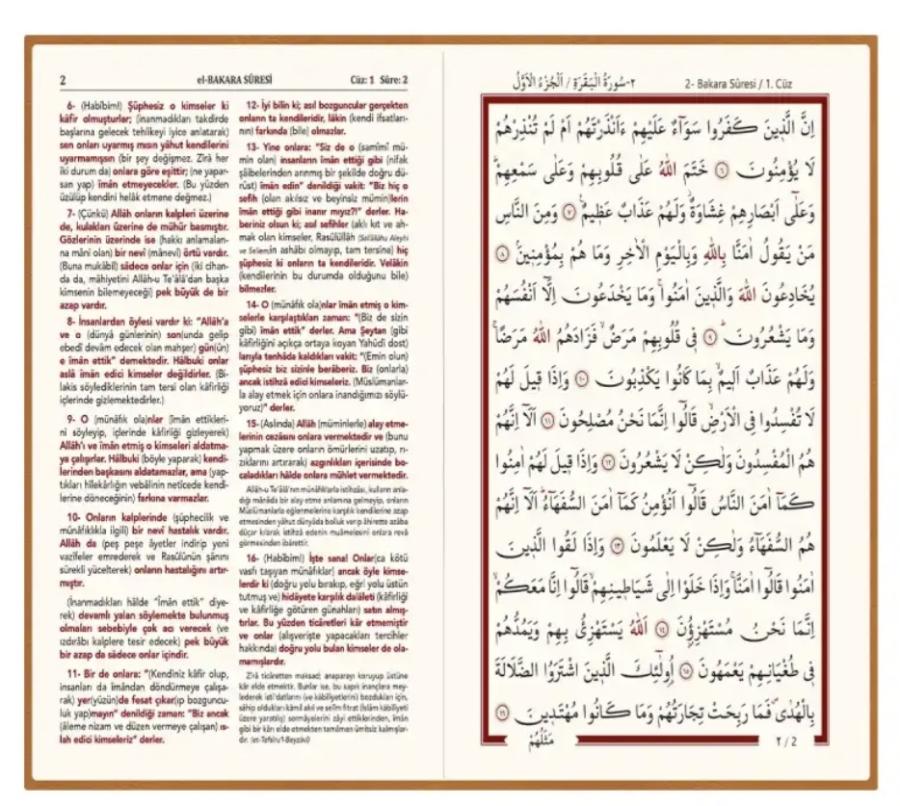 2 el-BAKARA SÛRESİ Cüz: 1 Sûre: 2
6- (Habîbim!) Şüphesiz o kimseler ki
kâfir olmuşturlar; (inanmadıkları takdirde
başlarına gelecek tehlikeyi iyice anlatarak)
sen onları uyarmış mısın yâhut kendilerini
uyarmamışsın (bir şey değişmez. Zîrâ her
iki durum da) onlara göre eşittir; (ne yapar-
san yap) îmân etmeyecekler. (Bu yüzden
üzülüp kendini helâk etmene değmez.)
7- (Çünkü) Allâh onların kalpleri üzerine
de, kulakları üzerine de mühür basmıştır.
Gözlerinin üzerinde ise (hakkı anlamaları-
na mâni olan) bir nevi (mânevî) örtü vardır.
(Buna mukâbil) sâdece onlar için (iki cihan-
da da, mâhiyetini Allâh-u Te'âlâ'dan başka
kimsenin bilemeyeceği) pek büyük de bir
azap vardır.
8- İnsanlardan öylesi vardır ki: "Allâh'a
ve o (dünyâ günlerinin) son(unda gelip
ebedî devâm edecek olan mahşer) gün(ün)
e îmân ettik" demektedir. Hâlbuki onlar
aslâ îmân edici kimseler değildirler. (Bi-
lakis söylediklerinin tam tersi olan kâfirliği
içlerinde gizlemektedirler.)
9- O (münâfık ola)nlar (îmân ettikleri-
ni söyleyip, içlerinde kâfirliği gizleyerek)
Allâh'ı ve îmân etmiş o kimseleri aldatma-
ya çalışırlar. Hâlbuki (böyle yaparak) kendi-
lerinden başkasını aldatamazlar, ama (yap-
tıkları hîlekârlığın vebâlinin neticede kendi-
lerine döneceğinin) farkına varmazlar.
10- Onların kalplerinde (şüphecilik ve
münâfıklıkla ilgili) bir nevi hastalık vardır.
Allâh da (peş peşe âyetler indirip yeni
vazîfeler emrederek ve Rasûlünün şânını
sürekli yücelterek) onların hastalığını artır-
mıştır.
(İnanmadıkları hâlde "Îmân ettik" diye-
rek) devamlı yalan söylemekte bulunmuş
olmaları sebebiyle çok acı verecek (ve
ızdırâbı kalplere tesir edecek) pek büyük
bir azap da sâdece onlar içindir.
11- Bir de onlara: "(Kendiniz kâfir olup,
insanları da îmândan döndürmeye çalışa-
rak) yer(yüzün)de fesat çıkar(ıp bozguncu-
luk yap)mayın" denildiği zaman: "Biz ancak
(âleme nizam ve düzen vermeye çalışan) ıs-
lah edici kimseleriz" derler.
12- İyi bilin ki; asıl bozguncular gerçekten
onların ta kendileridir, lâkin (kendi ifsatları-
nın) farkında (bile) olmazlar.
13- Yine onlara: "Siz de o (samîmî mü-
min olan) insanların îmân ettiği gibi (nifak
şâibelerinden arınmış bir şekilde doğru dü-
rüst) îmân edin" denildiği vakit: "Biz hiç o
sefih (olan akılsız ve beyinsiz mümin)lerin
îmân ettiği gibi inanır mıyız?!" derler. Ha-
beriniz olsun ki; asıl sefihler (aklı kıt ve ah-
mak olan kimseler, Rasûlüllâh (Sallâllâhu Aleyhi
ve Sellem)in ashâbı olmayıp, tam tersine) hiç
şüphesiz ki onların ta kendileridir. Velâkin
(kendilerinin bu durumda olduğunu bile)
bilmezler.
14- O (münâfık ola)nlar îmân etmiş o kim-
selerle karşılaştıkları zaman: "(Biz de sizin
gibi) îmân ettik" derler. Ama Şeytan (gibi
kâfirliğini açıkça ortaya koyan Yahûdî dost)
larıyla tenhâda kaldıkları vakit: "(Emin olun)
şüphesiz biz sizinle berâberiz. Biz (onlarla)
ancak istihzâ edici kimseleriz. (Müslümanlar-
la alay etmek için onlara inandığımızı söylü-
yoruz)" derler.
15- (Aslında) Allâh (müminlerle) alay etme-
lerinin cezâsını onlara vermektedir ve (bunu
yapmak üzere onların ömürlerini uzatıp, rı-
zıklarını artırarak) azgınlıkları içerisinde bo-
caladıkları hâlde onlara mühlet vermektedir.
Allâh-u Te'âlâ'nın münâfıklarla istihzâsı, kulların anla-
dığı mânâda bir alay etme anlamına gelmeyip, onların
Müslümanlarla eğlenmelerine karşılık kendilerine azap
etmesinden yâhut dünyâda bolluk verip âhirette azâba
düçar kılarak istihzâ edenin muâmelesini onlara revâ
görmesinden ibârettir.
16- (Habîbim!) İşte sana! Onlar(ca kötü
vasfı taşıyan münâfıklar) ancak öyle kimse-
lerdir ki (doğru yolu bırakıp, eğri yolu üstün
tutmuş ve) hidâyete karşılık dalâleti (kâfirliği
ve kâfirliğe götüren günahları) satın almış-
tırlar. Bu yüzden ticâretleri kâr etmemiştir
ve onlar (alışverişte yapacakları tercihler
hakkında) doğru yolu bulan kimseler de ola-
mamışlardır.
Zîrâ ticâretten maksad; anaparayı koruyup üstüne
kâr elde etmektir. Bunlar ise, bu sapık inançlara mey-
lederek isti'datlarını (ve kâbiliyetlerini) bozdukları için,
sâhip oldukları kâmil akıl ve selîm fıtrat (İslâm kâbiliyeti
üzere yaratılış) sermâyelerini zâyi ettiklerinden, îmân
gibi bir kârı elde etmekten tamâmen ümitsiz kalmışlar-
dır. (et-Tefsîru'l-Beyzâvî)
٢-سُورَةُ الْبَقَرَةِ / اَلْجُزْءُ الْاَوَّلُ 2- Bakara Sûresi / 1. Cüz
اِنَّ الَّذِينَ كَفَرُوا سَوَٓاءٌ عَلَيْهِمْ ءَاَنْذَرْتَهُمْ اَمْ لَمْ تُنْذِرْهُمْ
لَا يُؤْمِنُونَ ﴿٦﴾ خَتَمَ اللّٰهُ عَلٰى قُلُوبِهِمْ وَعَلٰى سَمْعِهِمْۜ
وَعَلٰٓى اَبْصَارِهِمْ غِشَاوَةٌۘ وَلَهُمْ عَذَابٌ عَظِيمٌ۟ ﴿٧﴾ وَمِنَ النَّاسِ
مَنْ يَقُولُ اٰمَنَّا بِاللّٰهِ وَبِالْيَوْمِ الْاٰخِرِ وَمَا هُمْ بِمُؤْمِنِينَۢ ﴿٨﴾
يُخَادِعُونَ اللّٰهَ وَالَّذِينَ اٰمَنُواۚ وَمَا يَخْدَعُونَ اِلَّٓا اَنْفُسَهُمْ
وَمَا يَشْعُرُونَۜ ﴿٩﴾ فِى قُلُوبِهِمْ مَرَضٌۙ فَزَادَهُمُ اللّٰهُ مَرَضًاۚ
وَلَهُمْ عَذَابٌ اَلِيمٌۙ بِمَا كَانُوا يَكْذِبُونَ ﴿١٠﴾ وَاِذَا قِيلَ لَهُمْ
لَا تُفْسِدُوا فِى الْاَرْضِۙ قَالُٓوا اِنَّمَا نَحْنُ مُصْلِحُونَ ﴿١١﴾ اَلَٓا اِنَّهُمْ
هُمُ الْمُفْسِدُونَ وَلٰكِنْ لَا يَشْعُرُونَ ﴿١٢﴾ وَاِذَا قِيلَ لَهُمْ اٰمِنُوا
كَمَٓا اٰمَنَ النَّاسُ قَالُٓوا اَنُؤْمِنُ كَمَٓا اٰمَنَ السُّفَهَٓاءُۜ اَلَٓا اِنَّهُمْ
هُمُ السُّفَهَٓاءُ وَلٰكِنْ لَا يَعْلَمُونَ ﴿١٣﴾ وَاِذَا لَقُوا الَّذِينَ
اٰمَنُوا قَالُٓوا اٰمَنَّاۚ وَاِذَا خَلَوْا اِلٰى شَيَاطِينِهِمْۙ قَالُٓوا اِنَّا مَعَكُمْۙ
اِنَّمَا نَحْنُ مُسْتَهْزِؤُنَ ﴿١٤﴾ اَللّٰهُ يَسْتَهْزِئُ بِهِمْ وَيَمُدُّهُمْ
فِى طُغْيَانِهِمْ يَعْمَهُونَ ﴿١٥﴾ اُو۬لٰٓئِكَ الَّذِينَ اشْتَرَوُا الضَّلَالَةَ
بِالْهُدٰىۖ فَمَا رَبِحَتْ تِجَارَتُهُمْ وَمَا كَانُوا مُهْتَدِينَ ﴿١٦﴾
مَثَلُهُمْ ٢ / 2